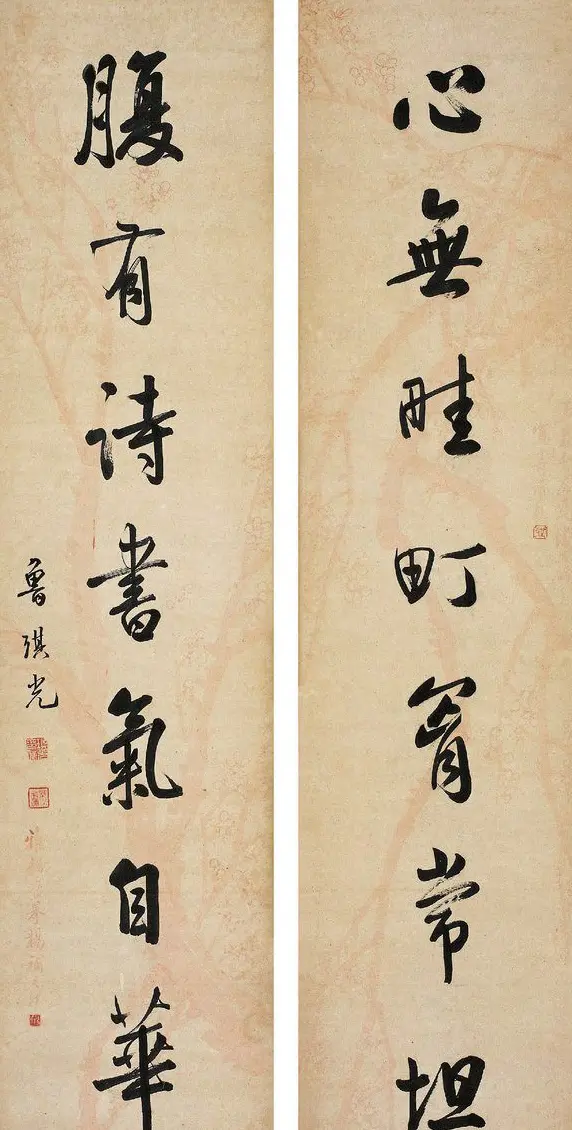 心無畦町胷常坦
腹有詩書氣自華
魯琪光